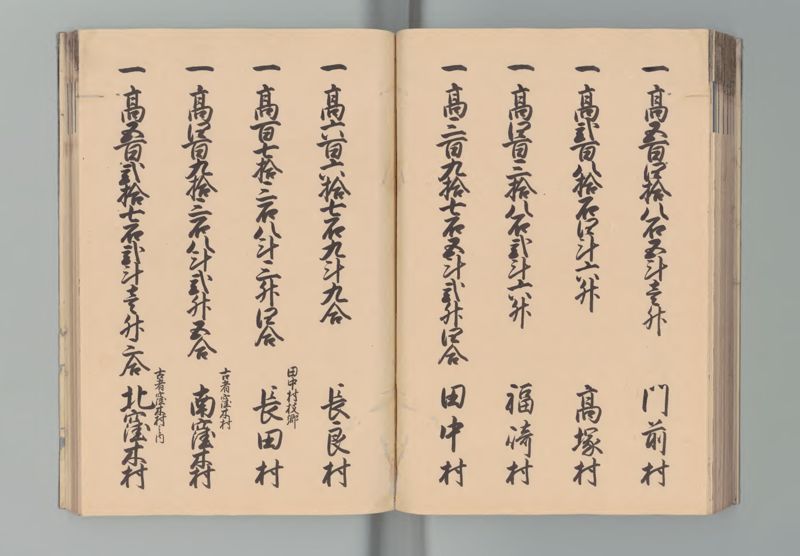 一 高五百四拾八石五斗壱升 門前村
一 高弐百八拾石四斗六升 高塚村
一 高四百三拾八石弐斗六升 福崎村
一 高三百九拾七石五斗弐升四合 田中村
一 高六百六拾七石九斗九合 長良村
田中村枝郷
一 高百七拾三石八斗三升四合 長田村
古者窪木村
一 高四百九拾三石八斗弐升五合 南窪木村
古者窪木村之内
一 高五百弐拾七石弐斗壱升六合 北窪木村